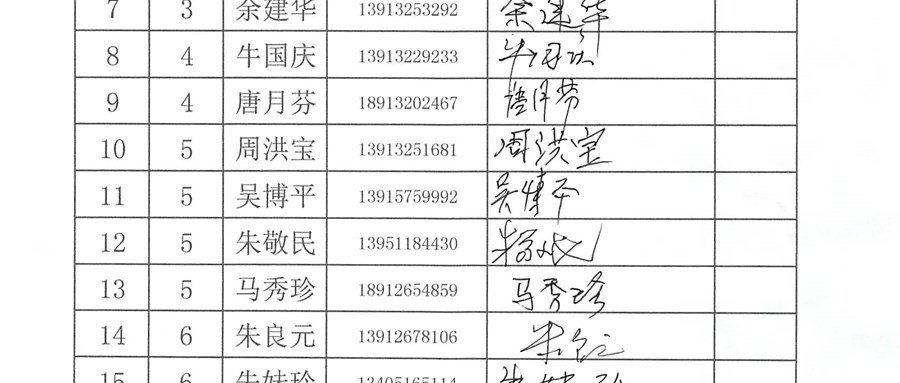 7 3 余建华 13913253292 余建华
8 4 牛国庆 13913229233 牛国庆
9 4 唐月芬 18913202467 唐月芬
10 5 周洪宝 13913251681 周洪宝
11 5 吴博平 13915759992 吴博平
12 5 朱敬民 13951184430 朱敬民
13 5 马秀珍 18912654859 马秀珍
14 6 朱良元 13912678106 朱良元
15 6 朱妹珍 13405165114